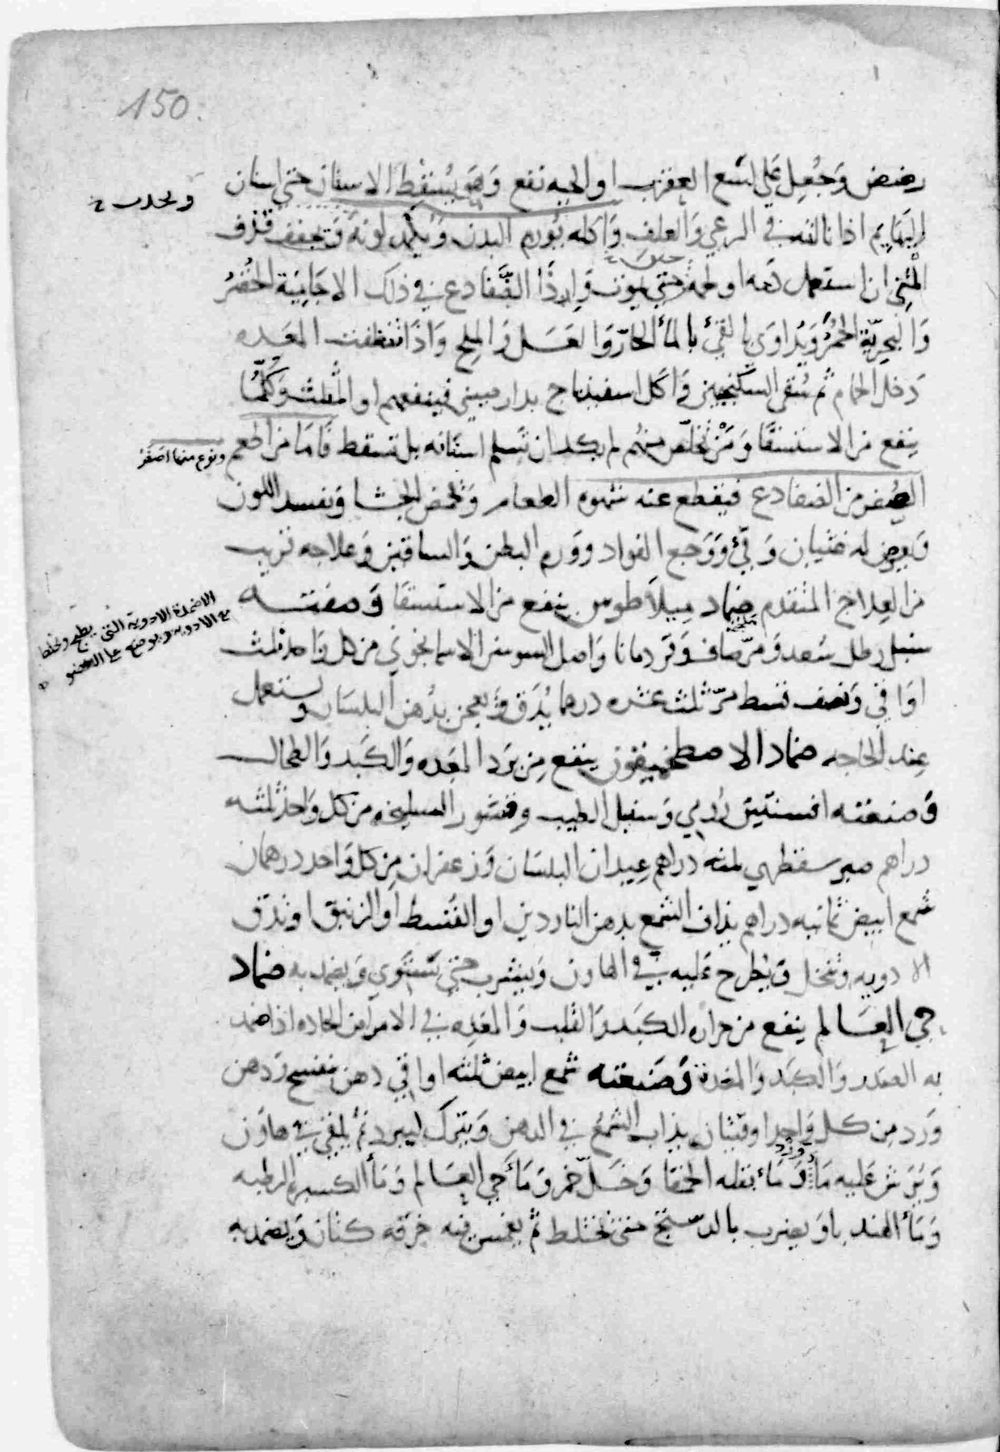 150.
رضض وجعل على لسع العقرب او الحيه نفع وهو يسقط الاسنان حتى اسنان
البهايم اذا نالته في الرعي والعلف واكله يورم البدن ويكمد لونه ويجفف قذف
المني ان استعمل دمه او لحمه حتى يموت واردأ الضفادع في ذلك الاجاميه الخضر
والبحريه الحمر ويداوى بالقئ بالمأ الحار والعسل والملح واذا تنظفت المعده
دخل الحمام ثم سقى السكنجبين واكل اسفيدباج بدار صيني فينفعهم او المثلث وكلما
ينفع من الاستسقا ومن تخلص منهم لم يكد ان تسلم اسنانه بل تسقط فاما من اطعم
ونوع منها اصفر
الصفر من الضفادع فيقطع عنه شهوه الطعام وتحمض الجشا وتفسد اللون
ويعرض له غثيان وقئ ووجع الفواد وورم البطن والساقين وعلاجه قريب
من العلاج المتقدم ضماد ميلاطوس ينفع من الاستسقا وصفته
الاضمدة الادويه التى يطبخ وتخلط
الادويه ويوضع على العضو
سنبل رطل سعد ومر صاف وقردمانا واصل السوسن الاسمانجوني من كل واحد ثلث
اواقي ونصف قسط مر ثلث عشره درهما يدق ويعجن بدهن البلسان ويستعمل
عند الحاجه ضماد الاصطمخيقون ينفع من برد المعده والكبد والطحال
وصنعته افسنتين رومي وسنبل الطيب وقشور السليخه من كل واحد ثلثه
دراهم صبر سقطري ثلثه دراهم عيدان البلسان وزعفران من كل واحد درهمان
شمع ابيض ثمانيه دراهم يذاف الشمع بدهن الناردين او القسط او الزنبق او تدق
الادويه وتنخل ويطرح عليه في الهاون ويشرب حتى يستوي ويضمد به ضماد
حي العالم ينفع من حراره الكبد والقلب والمعده في الامراض الحاده اذا ضمد
به الصدر والكبد والمعدة وصنعته شمع ابيض ثلثه اواقي دهن بنفسج ودهن
ورد من كل واحد اوقيتان يذاب الشمع في الدهن ويترك ليبرد ثم يلقى في هاون
ويرش عليه مأ ورد ومأ بقله الحمقا وخل خمر ومأ حي العالم ومأ الكسبره الرطبه
ومأ الهندبا ويضرب بالدستج حتى يختلط ثم يغمس فيه خرقه كتان ويضمد به